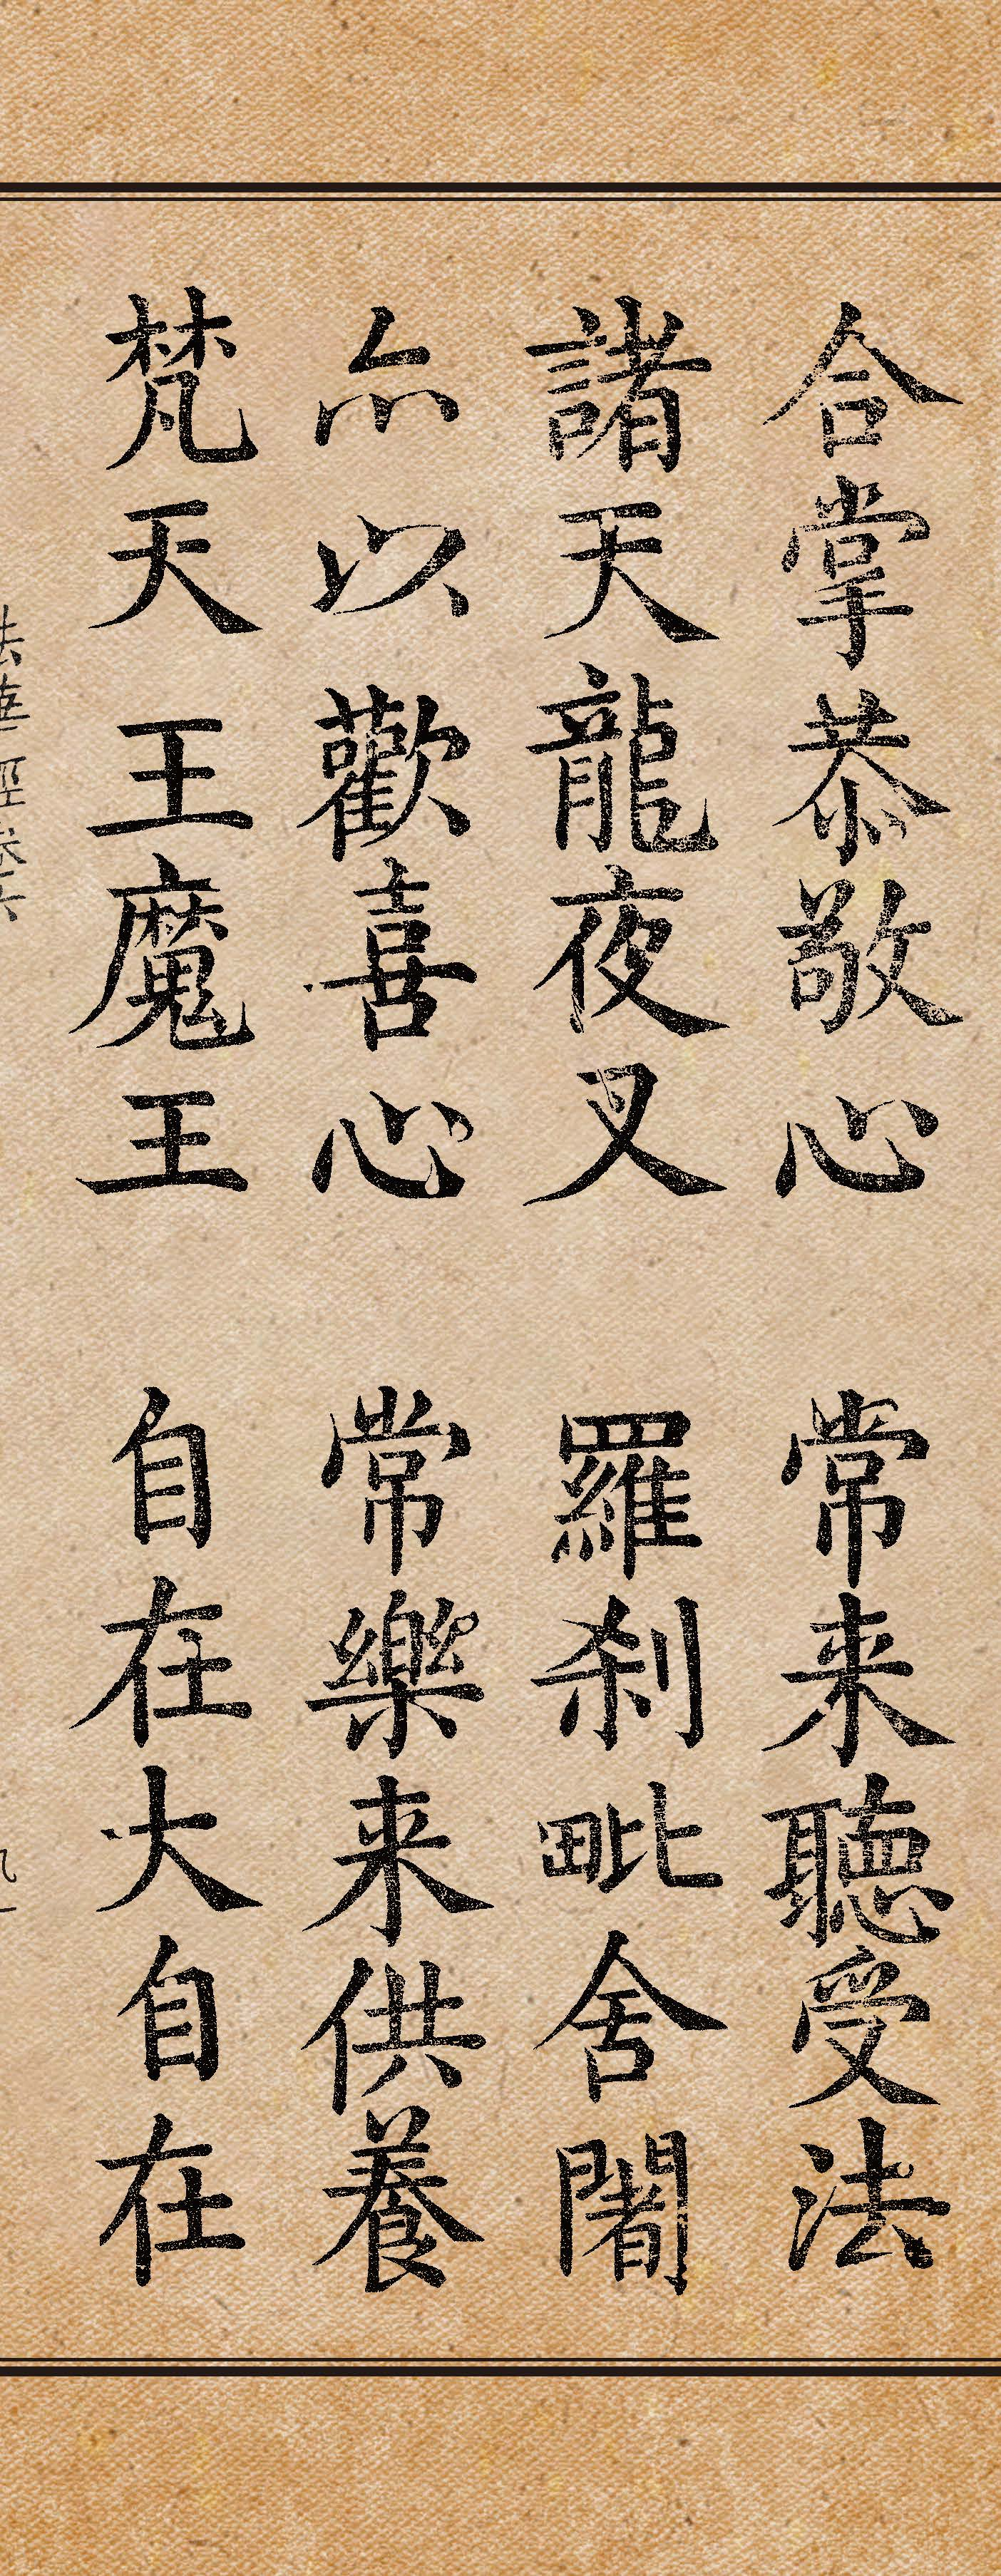 合掌恭敬心 常来聽受法
諸天龍夜叉 羅刹毗舍闍
亦以歡喜心 常樂来供養
梵天王魔王 自在大自在
法華經卷六